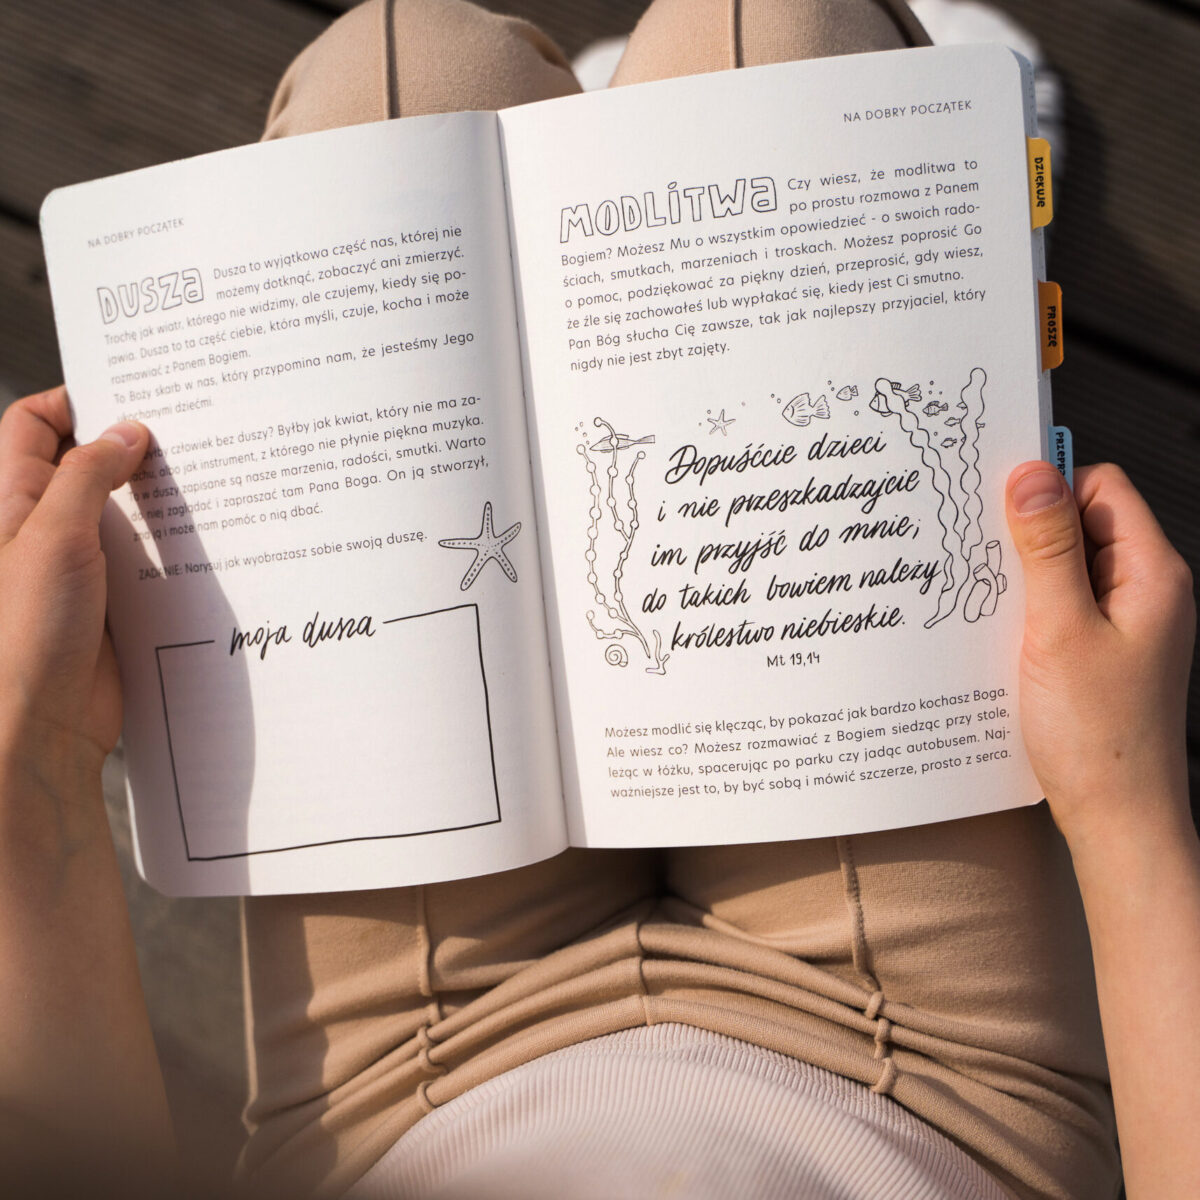 NA DOBRY POCZĄTEK
DUSZA Dusza to wyjątkowa część nas, której nie
możemy dotknąć, zobaczyć ani zmierzyć.
Trochę jak wiatr, którego nie widzimy, ale czujemy, kiedy się po-
jawia. Dusza to ta część ciebie, która myśli, czuje, kocha i może
rozmawiać z Panem Bogiem.
To Boży skarb w nas, który przypomina nam, że jesteśmy Jego
ukochanymi dziećmi.
byłby człowiek bez duszy? Byłby jak kwiat, który nie ma za-
pachu, albo jak instrument, z którego nie płynie piękna muzyka.
To w duszy zapisane są nasze marzenia, radości, smutki. Warto
do niej zaglądać i zapraszać tam Pana Boga. On ją stworzył,
zna ją i może nam pomóc o nią dbać.
ZADANIE: Narysuj jak wyobrażasz sobie swoją duszę.
moja dusza
NA DOBRY POCZĄTEK
MODLITWA Czy wiesz, że modlitwa to
po prostu rozmowa z Panem
Bogiem? Możesz Mu o wszystkim opowiedzieć - o swoich rado-
ściach, smutkach, marzeniach i troskach. Możesz poprosić Go
o pomoc, podziękować za piękny dzień, przeprosić, gdy wiesz,
że źle się zachowałeś lub wypłakać się, kiedy jest Ci smutno.
Pan Bóg słucha Cię zawsze, tak jak najlepszy przyjaciel, który
nigdy nie jest zbyt zajęty.
Dopuśćcie dzieci
i nie przeszkadzajcie
im przyjść do mnie;
do takich bowiem należy
królestwo niebieskie.
Mt 19,14
Możesz modlić się klęcząc, by pokazać jak bardzo kochasz Boga.
Ale wiesz co? Możesz rozmawiać z Bogiem siedząc przy stole,
leżąc w łóżku, spacerując po parku czy jadąc autobusem. Naj-
ważniejsze jest to, by być sobą i mówić szczerze, prosto z serca.
DZIĘKUJĘ
PROSZĘ